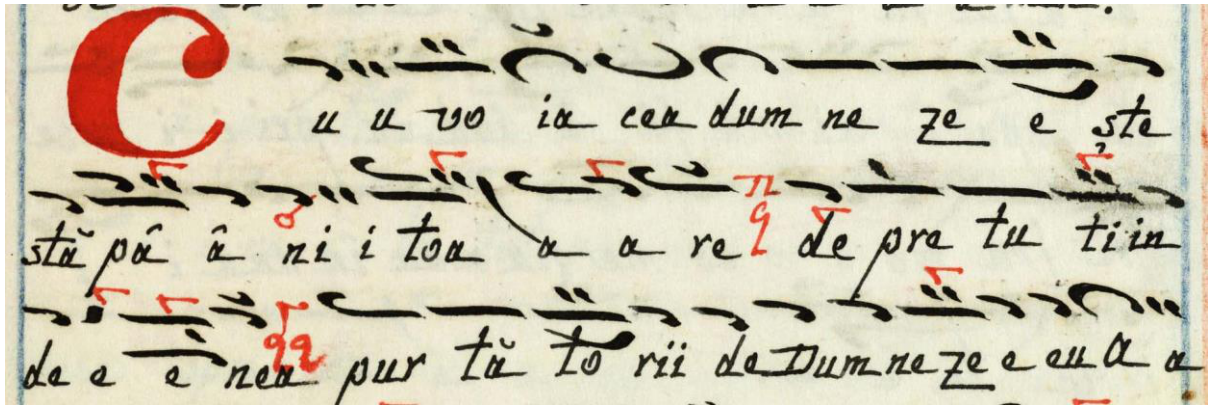 C u u vo ia cea dum ne ze e ște
stă pâ â ni i toa a a re de pre tu ti in
de e e nea pur tă to rii de Dum ne ze e eu a a